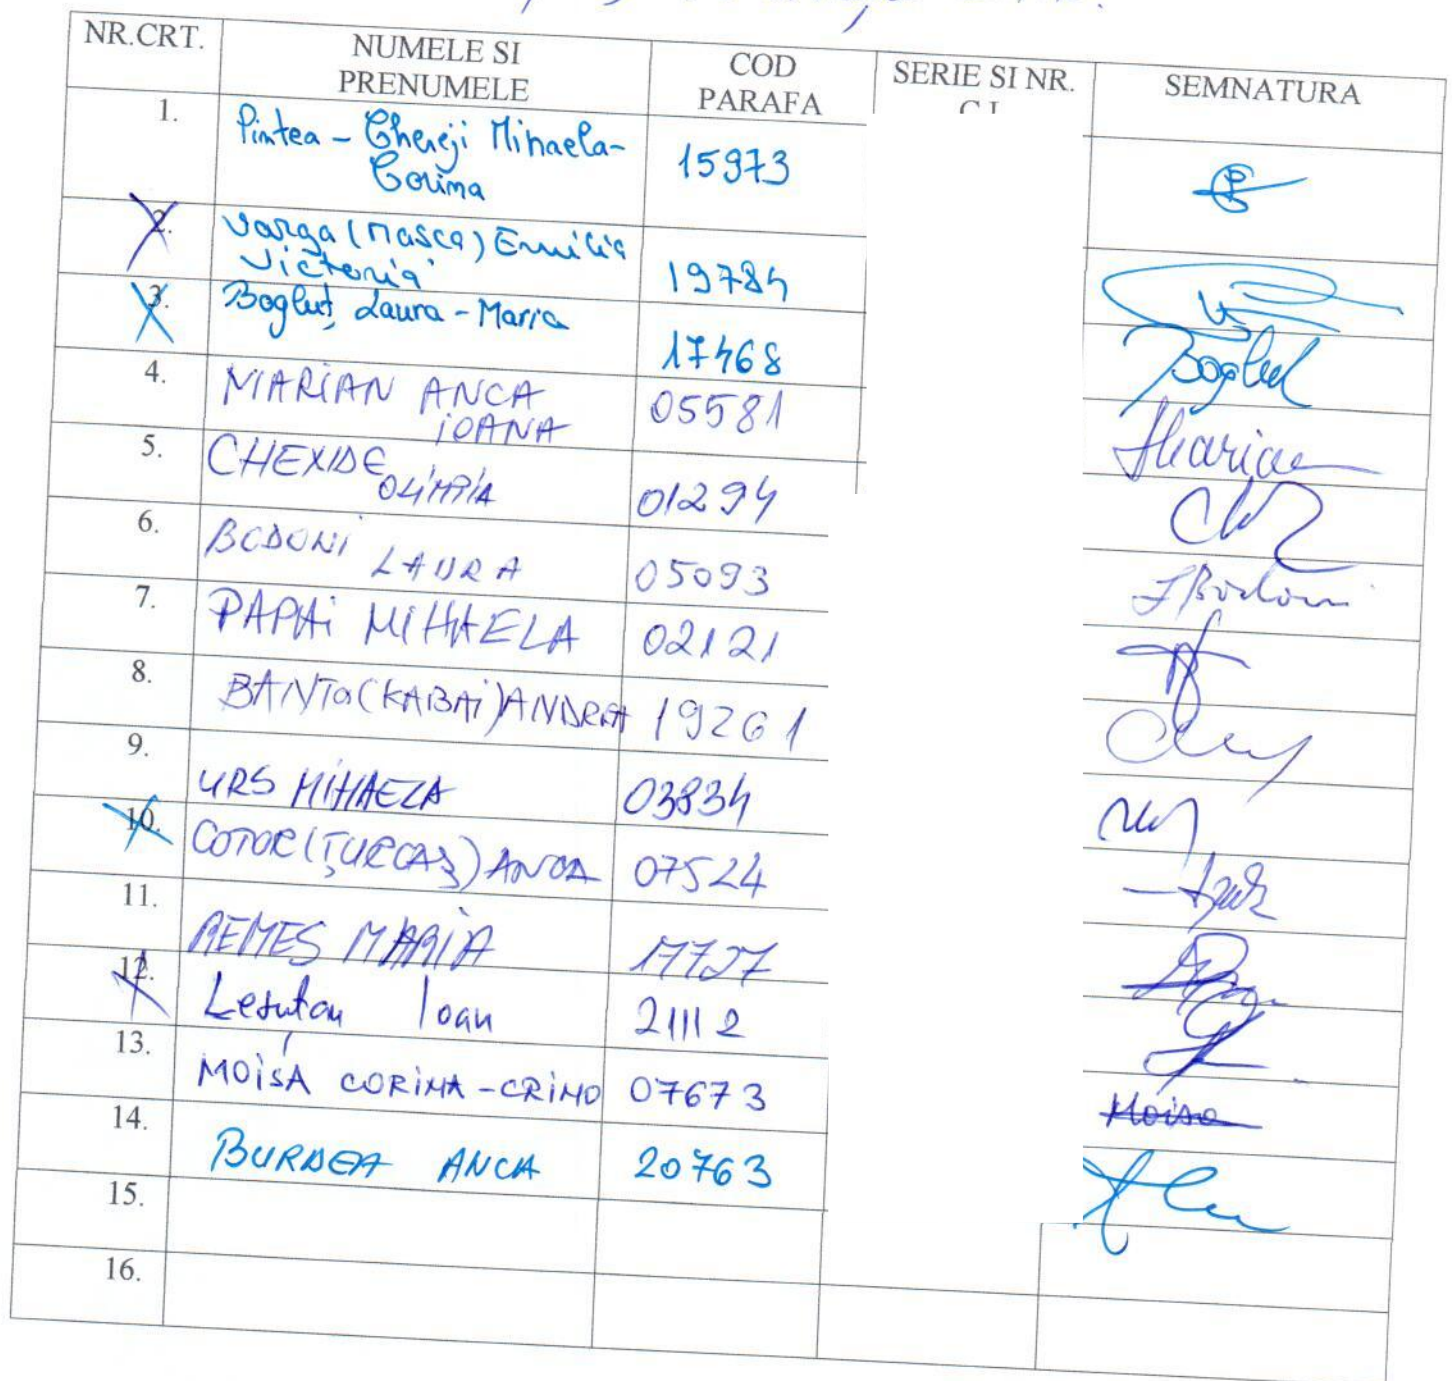 NR.CRT. NUMELE SI PRENUMELE COD PARAFA SERIE SI NR. SEMNATURA
1. Pintea - Ghereji Mihaela- Corina 15973
2. Varga (Masca) Emilia Victoria 19784
3. Bogluț Laura - Maria 17468 Boglut
4. MARIAN ANCA IOANA 05581 Marian
5. CHEXIDE OLIMPIA 01294
6. BODONI LAURA 05093 LBodoni
7. PAPAI MIHAELA 02121
8. BANTO (KABAI) ANDREA 19261
9. URS MIHAELA 03834
10. COTOR (ȚURCAȘ) ANCA 07524
11. REMES MARIA
12. Ioan 21112
13. MOISA CORINA - CRINA 07673 Moisa
14. BURDEA ANCA 20763
15.
16.